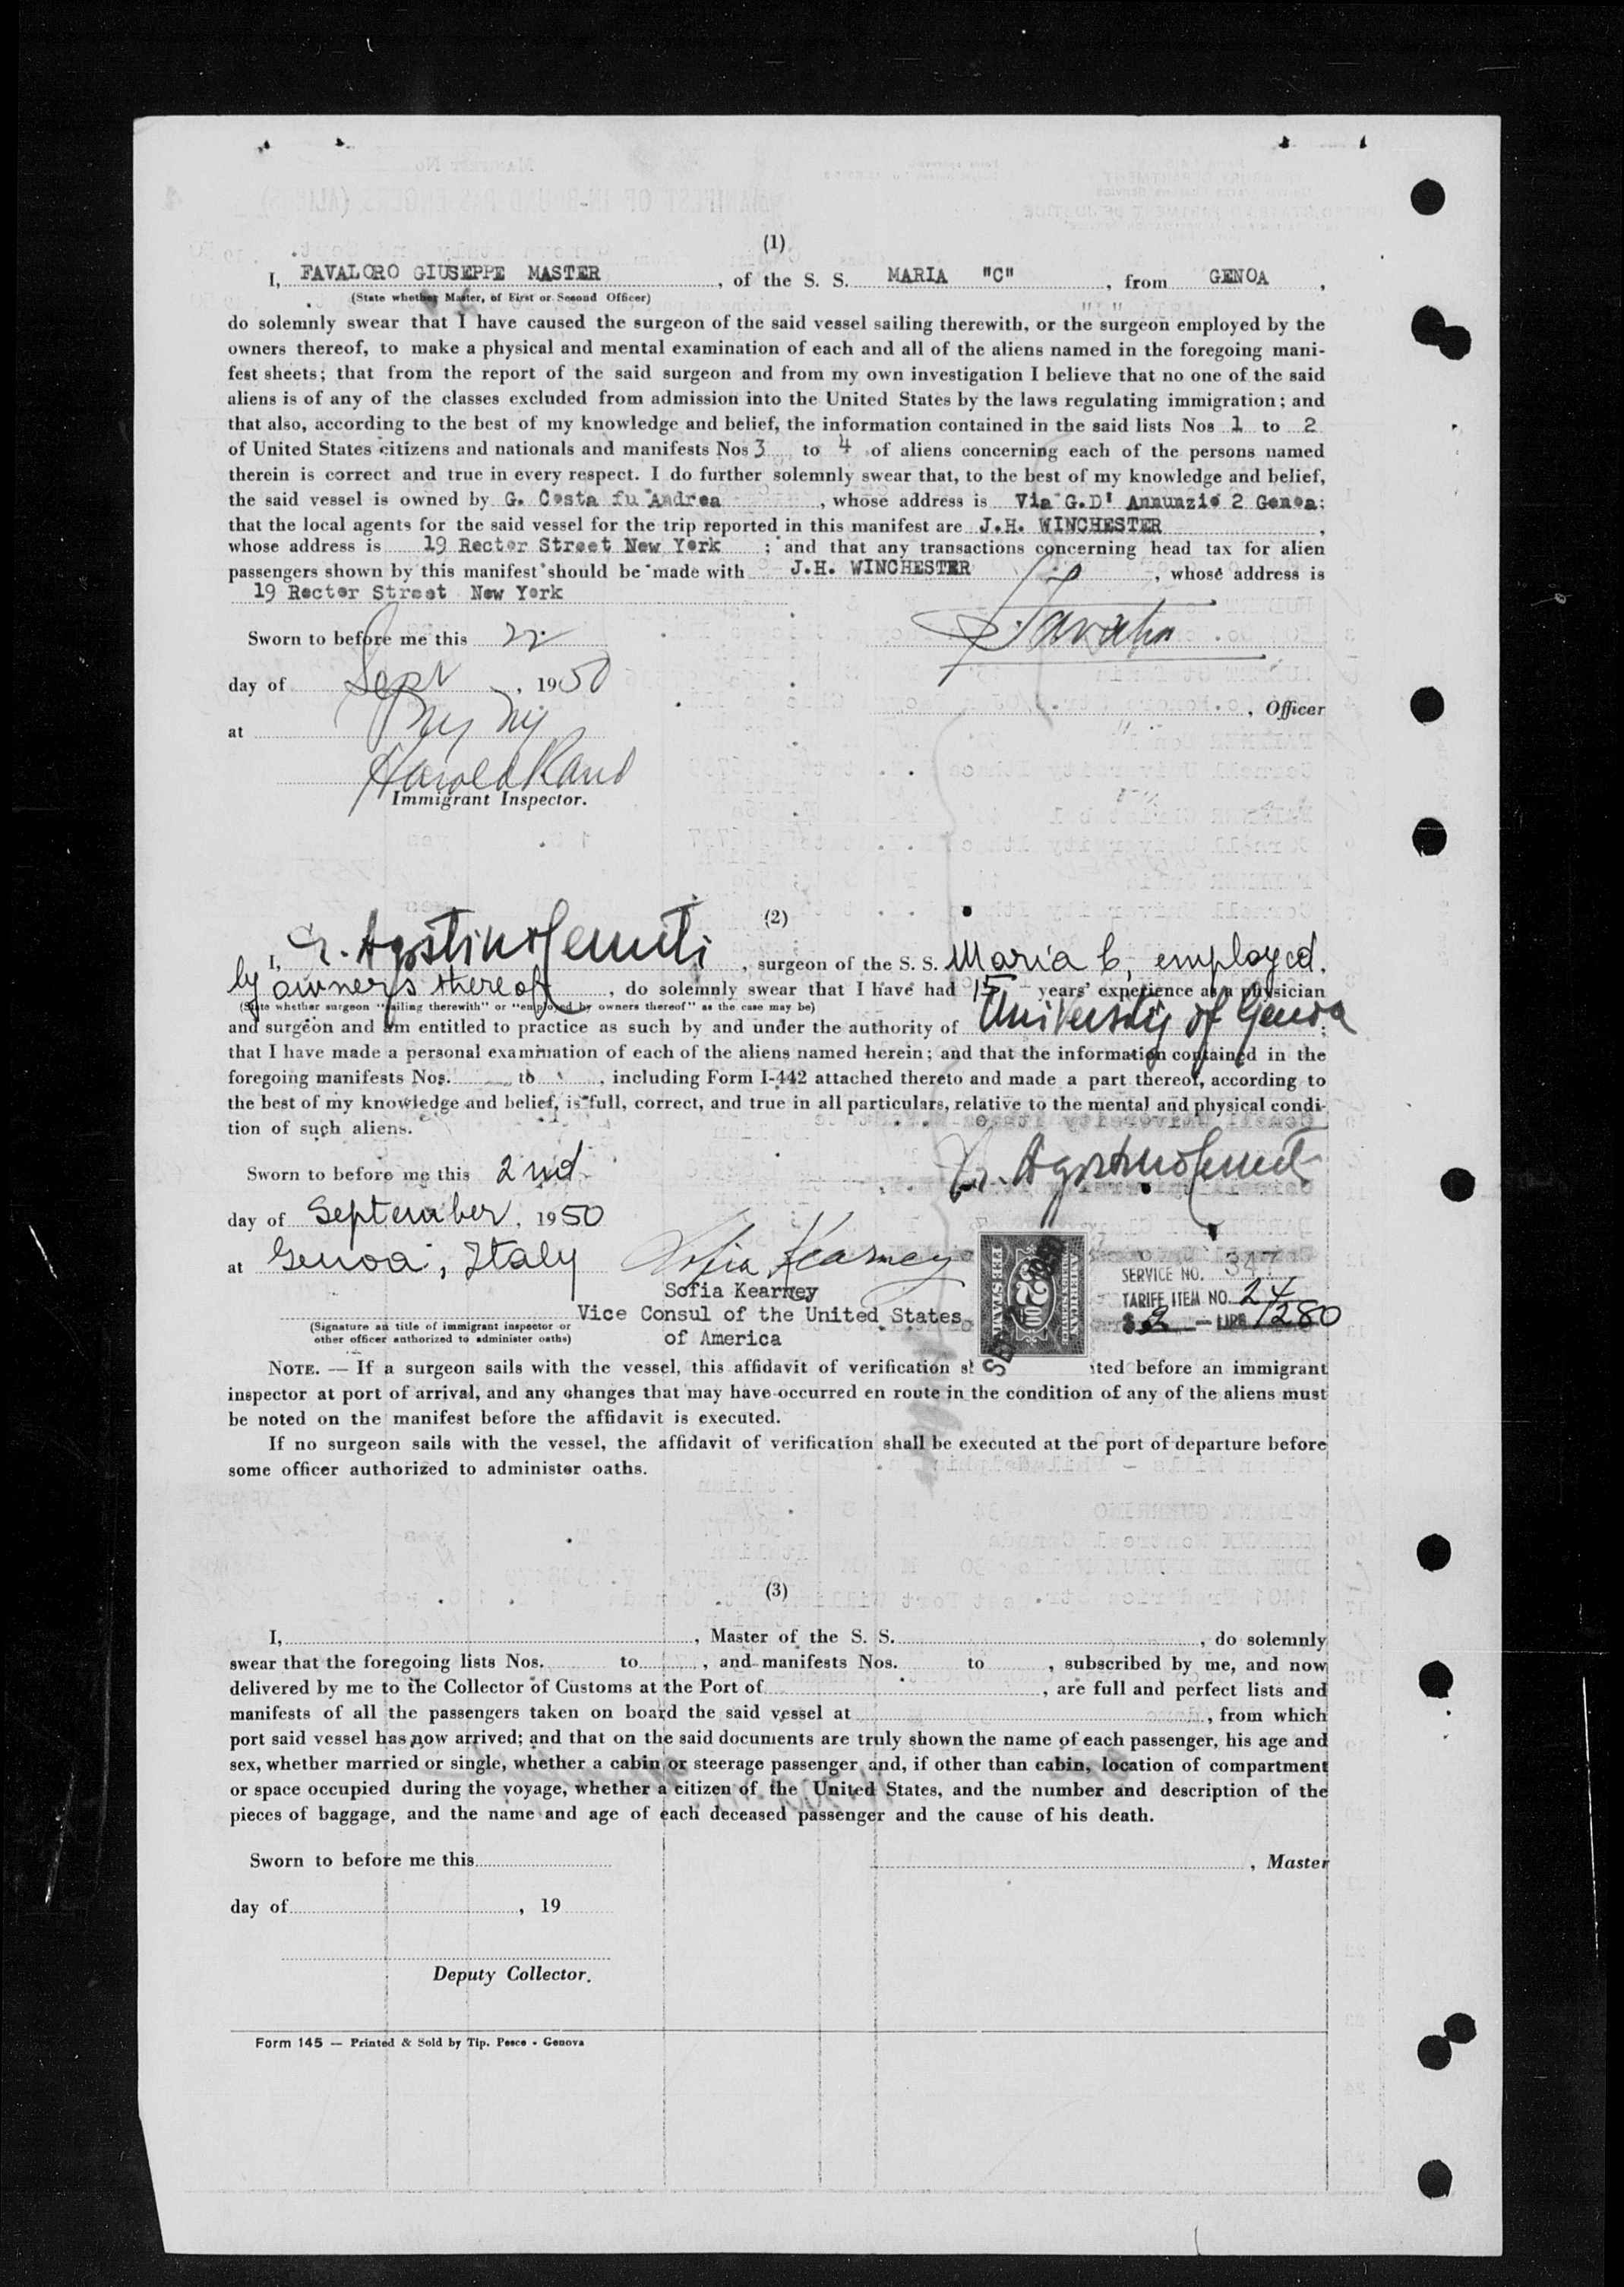 (1)
I, FAVALORO GIUSEPPE MASTER, of the S. S. MARIA "C", from GENOA,
(State whether Master, of First or Second Officer)
do solemnly swear that I have caused the surgeon of the said vessel sailing therewith, or the surgeon employed by the
owners thereof, to make a physical and mental examination of each and all of the aliens named in the foregoing mani-
fest sheets; that from the report of the said surgeon and from my own investigation I believe that no one of the said
aliens is of any of the classes excluded from admission into the United States by the laws regulating immigration; and
that also, according to the best of my knowledge and belief, the information contained in the said lists Nos 1 to 2
of United States citizens and nationals and manifests Nos 3 to 4 of aliens concerning each of the persons named
therein is correct and true in every respect. I do further solemnly swear that, to the best of my knowledge and belief,
the said vessel is owned by G. Costa fu Andrea, whose address is Via G.D' Annunzio 2 Genoa;
that the local agents for the said vessel for the trip reported in this manifest are J.H. WINCHESTER,
whose address is 19 Rector Street New York; and that any transactions concerning head tax for alien
passengers shown by this manifest should be made with J.H. WINCHESTER, whose address is
19 Rector Street New York
Sworn to before me this 22
day of Sept, 1950
at NY
Harold Rand
Immigrant Inspector.
, Officer
(2)
I, Agostino, surgeon of the S. S. Maria C, employed
by owners thereof, do solemnly swear that I have had 15 years' experience as a physician
(State whether surgeon "sailing therewith" or "employed by owners thereof" as the case may be)
and surgeon and am entitled to practice as such by and under the authority of University of Genoa;
that I have made a personal examination of each of the aliens named herein; and that the information contained in the
foregoing manifests Nos. to, including Form I-442 attached thereto and made a part thereof, according to
the best of my knowledge and belief, is full, correct, and true in all particulars, relative to the mental and physical condi-
tion of such aliens.
Sworn to before me this 2nd
day of September, 1950
at Genoa, Italy
Sofia Kearney
Sofia Kearney
Vice Consul of the United States
of America
(Signature an title of immigrant inspector or
other officer authorized to administer oaths)
SERVICE NO. 347
TARIFF ITEM NO. 24
$ 2 — LIRE 1280
NOTE. — If a surgeon sails with the vessel, this affidavit of verification ted before an immigrant
inspector at port of arrival, and any changes that may have occurred en route in the condition of any of the aliens must
be noted on the manifest before the affidavit is executed.
If no surgeon sails with the vessel, the affidavit of verification shall be executed at the port of departure before
some officer authorized to administer oaths.
(3)
I, , Master of the S. S. , do solemnly
swear that the foregoing lists Nos. to , and manifests Nos. to , subscribed by me, and now
delivered by me to the Collector of Customs at the Port of , are full and perfect lists and
manifests of all the passengers taken on board the said vessel at , from which
port said vessel has now arrived; and that on the said documents are truly shown the name of each passenger, his age and
sex, whether married or single, whether a cabin or steerage passenger and, if other than cabin, location of compartment
or space occupied during the voyage, whether a citizen of the United States, and the number and description of the
pieces of baggage, and the name and age of each deceased passenger and the cause of his death.
Sworn to before me this
, Master
day of , 19
Deputy Collector.
Form 145 — Printed & Sold by Tip. Pesce - Genova